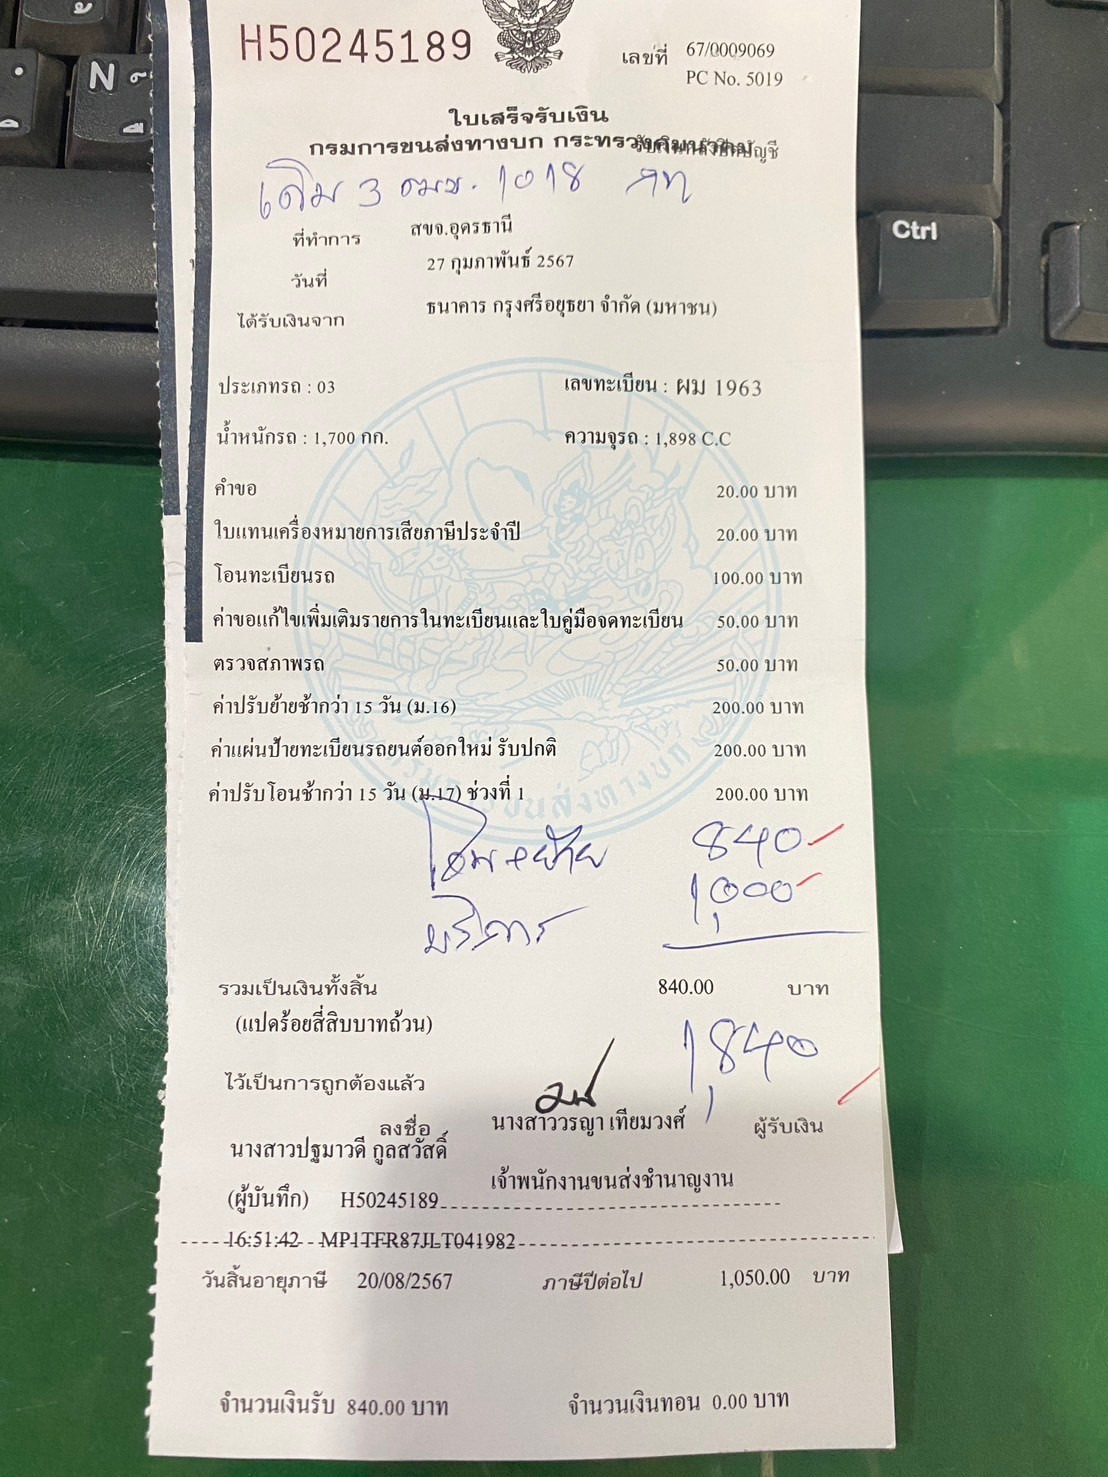 H50245189
เลขที่ 67/0009069
PC No. 5019
ใบเสร็จรับเงิน
กรมการขนส่งทางบก กระทรวงคมนาคม
เดิม 3 ฒฆ. 1018 กท
ที่ทำการ สขจ.อุดรธานี
วันที่ 27 กุมภาพันธ์ 2567
ได้รับเงินจาก ธนาคาร กรุงศรีอยุธยา จำกัด (มหาชน)
ประเภทรถ : 03 เลขทะเบียน : ผม 1963
น้ำหนักรถ : 1,700 กก. ความจุรถ : 1,898 C.C
คำขอ 20.00 บาท
ใบแทนเครื่องหมายการเสียภาษีประจำปี 20.00 บาท
โอนทะเบียนรถ 100.00 บาท
ค่าขอแก้ไขเพิ่มเติมรายการในทะเบียนและใบคู่มือจดทะเบียน 50.00 บาท
ตรวจสภาพรถ 50.00 บาท
ค่าปรับย้ายช้ากว่า 15 วัน (ม.16) 200.00 บาท
ค่าแผ่นป้ายทะเบียนรถยนต์ออกใหม่ รับปกติ 200.00 บาท
ค่าปรับโอนช้ากว่า 15 วัน (ม.17) ช่วงที่ 1 200.00 บาท
โอน+ย้าย 840
บริการ 1,000
รวมเป็นเงินทั้งสิ้น 840.00 บาท
(แปดร้อยสี่สิบบาทถ้วน)
1,840
ไว้เป็นการถูกต้องแล้ว
ลงชื่อ นางสาววรญา เทียมวงศ์ ผู้รับเงิน
นางสาวปฐมาวดี กูลสวัสดิ์
เจ้าพนักงานขนส่งชำนาญงาน
(ผู้บันทึก) H50245189
16:51:42 MP1TFR87JLT041982
วันสิ้นอายุภาษี 20/08/2567 ภาษีปีต่อไป 1,050.00 บาท
จำนวนเงินรับ 840.00 บาท จำนวนเงินทอน 0.00 บาท
N
Ctrl